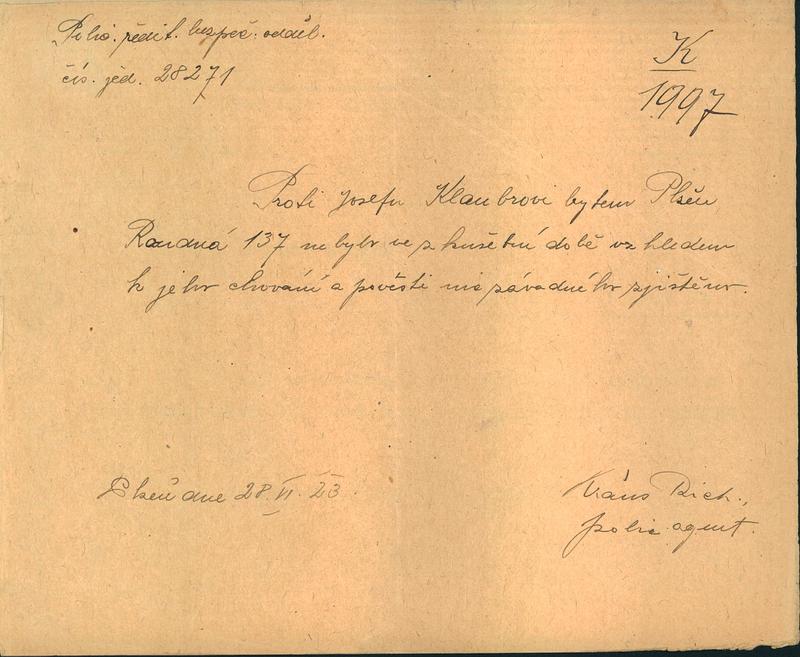 Polic. ředit. bezpeč. odděl.
čís. jed. 28271
K
1997
Proti Josefu Klaubrovi bytem Plzeň
Roudná 137 nebylo ve zkušební době vzhledem
k jeho chování a pověsti nic závadného zjištěno.
Plzeň dne 28. VI. 23.
Rich.,
polic. agent.